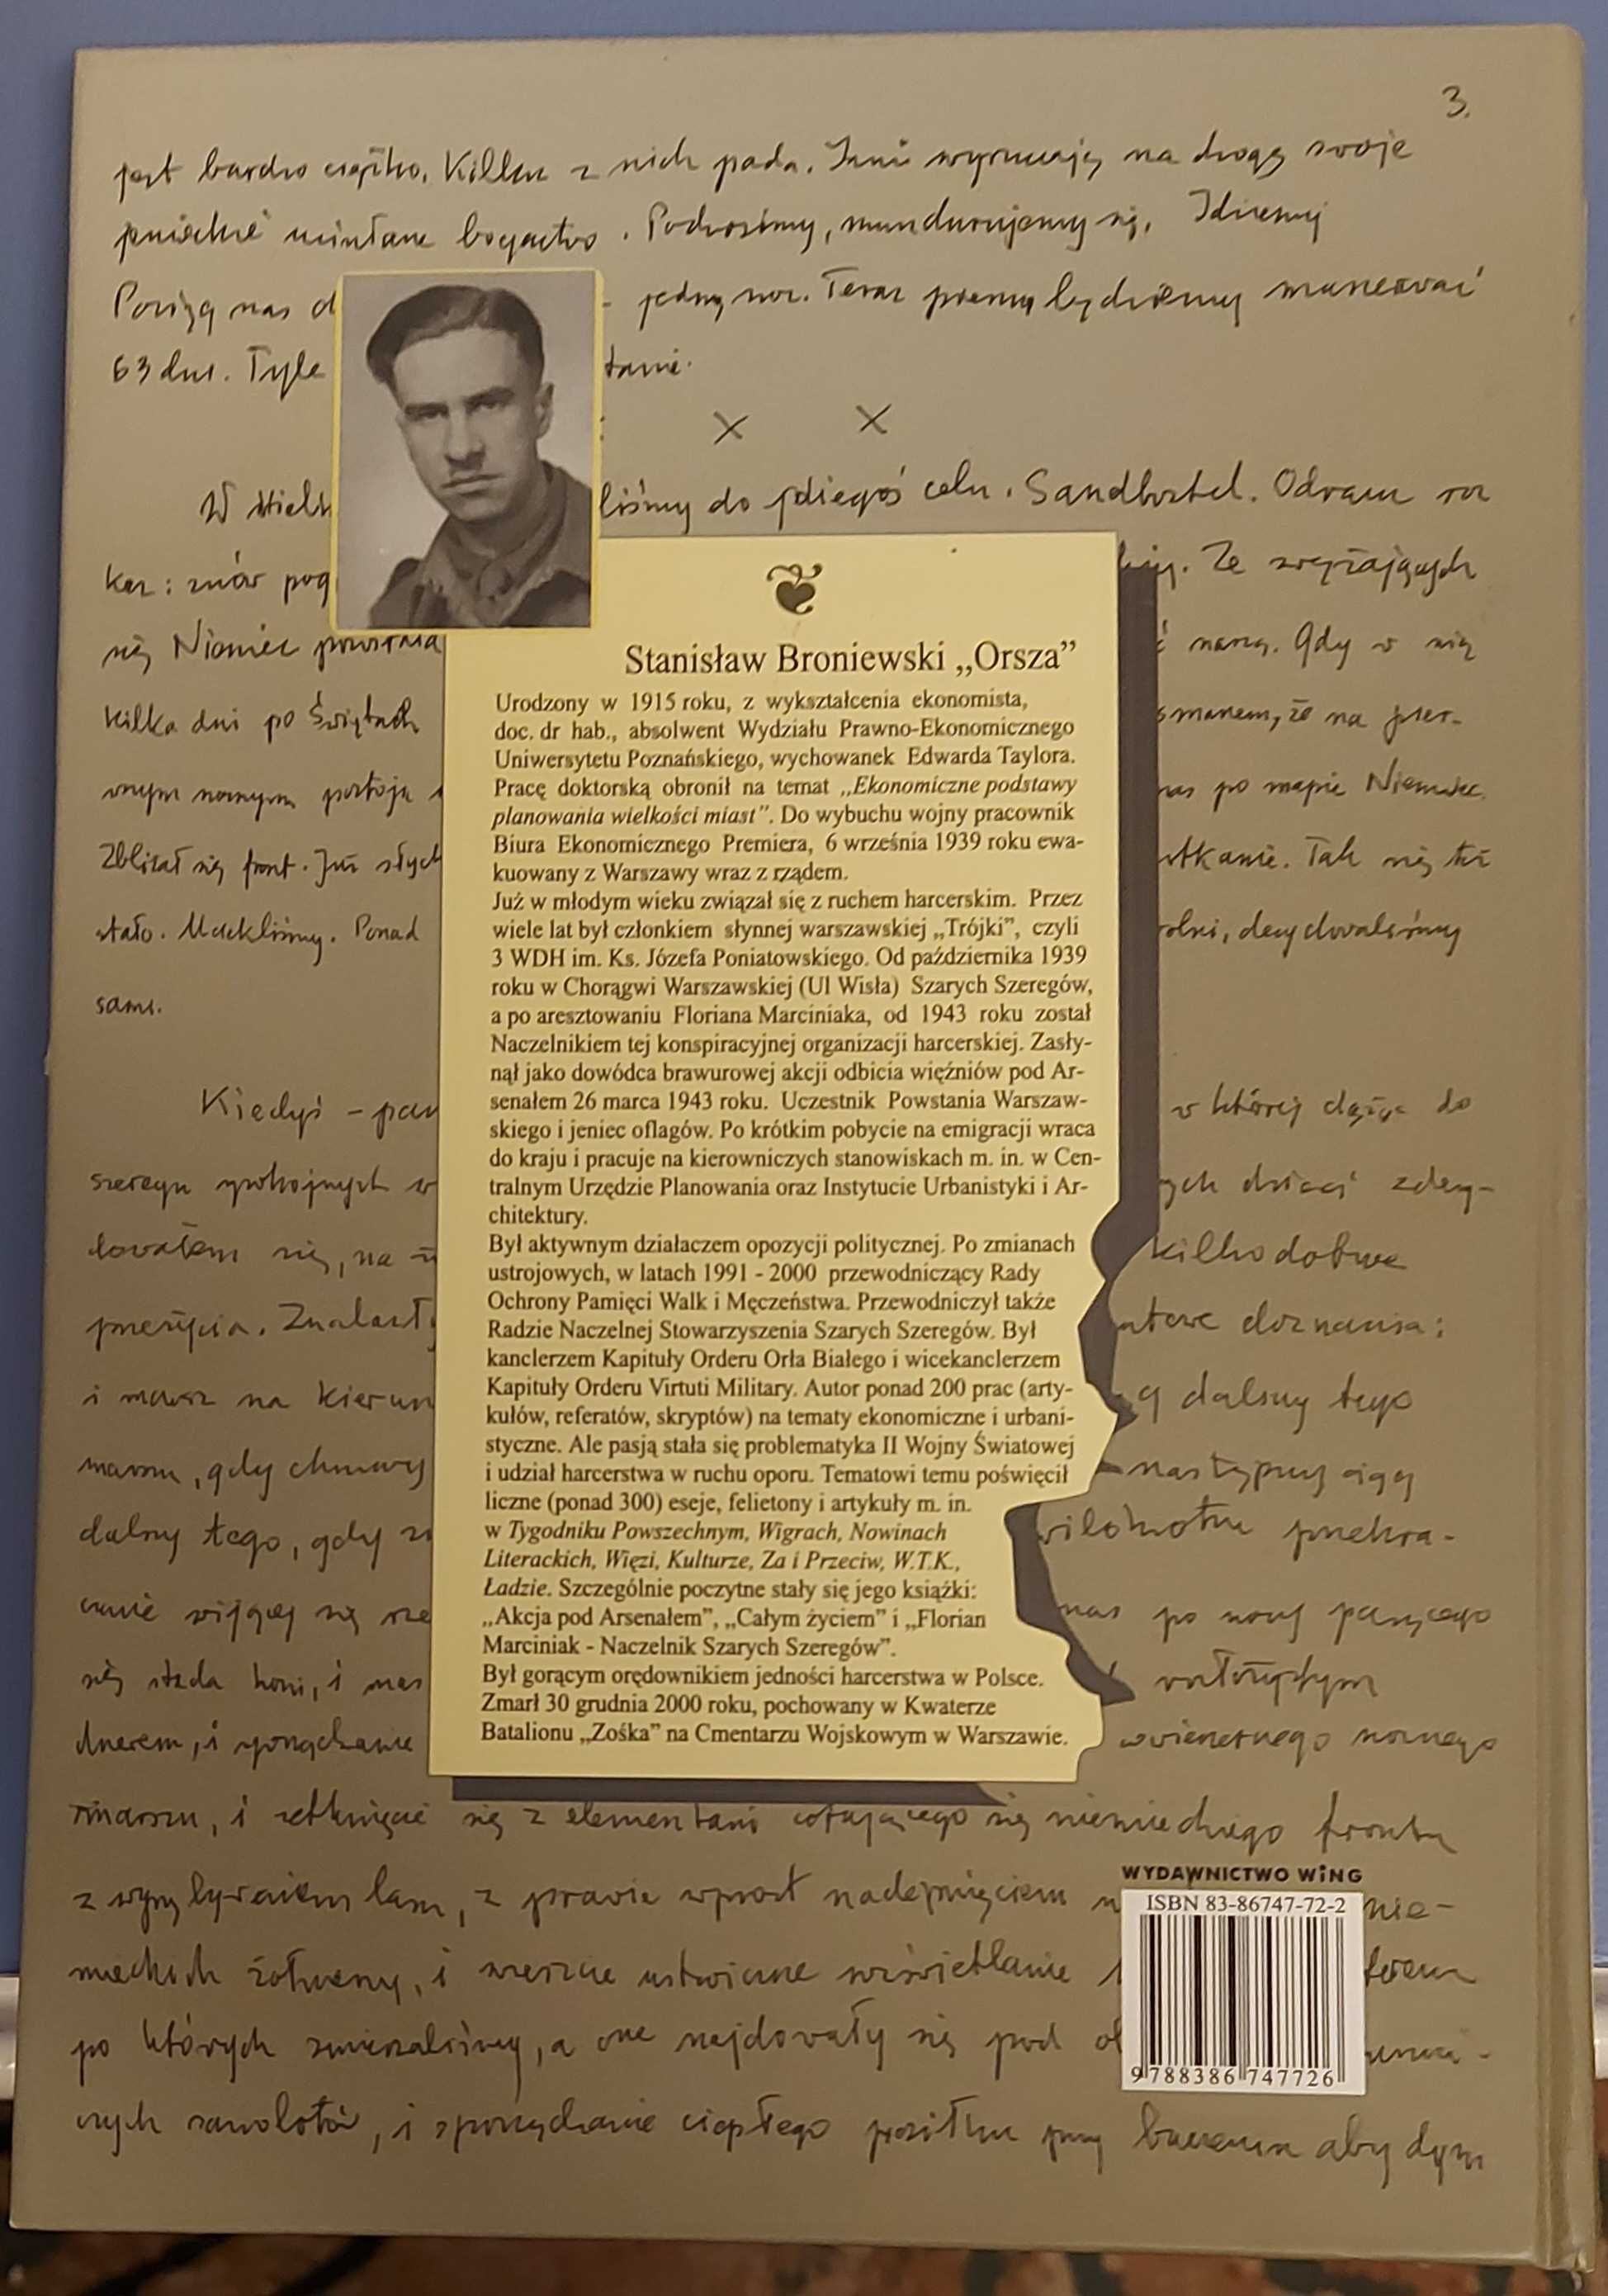 3.
jest bardzo ciężko. Kilku z nich pada. Inni wyrzucają na drogę swoje
bogactwo. Podnosimy, mundurujemy się. Idziemy
nas jedną noc. Teraz będziemy
63 dni. Tyle
× ×
W liśmy do jakiegoś celu. Sandbostel. Odrazu roz
kaz: znów Ze zwężających
się Niemiec naszą. Gdy w nią
kilka dni po Świętach że na pier-
wszym nocnym postoju nas po mapie Niemiec.
Zbliżał się front. Już Tak się też
stało. Uciekliśmy. Ponad decydowaliśmy
sami.
Kiedyś - w której dążąc do
szeregu spokojnych dzieci zdecy-
dowałem się, na kilkodobwe
przeżycia. doznania:
i marsz na dalszy tego
marszu, gdy chmury następny ciąg
dalszy tego, gdy
się nas po nocy pasącego
się stada koni, i nas
i nocnego
marszu, i zetknięcie się z elementami cofającego się niemieckiego frontu
z z prawie wprost nadepnięciem nie-
mieckich żołnierzy, i wreszcie
po których zmierzaliśmy, a one znajdowały się pod
samolotów, i sporządzanie ciepłego posiłku przy baczeniu aby dym
Stanisław Broniewski „Orsza”
Urodzony w 1915 roku, z wykształcenia ekonomista,
doc. dr hab., absolwent Wydziału Prawno-Ekonomicznego
Uniwersytetu Poznańskiego, wychowanek Edwarda Taylora.
Pracę doktorską obronił na temat „Ekonomiczne podstawy
planowania wielkości miast”. Do wybuchu wojny pracownik
Biura Ekonomicznego Premiera, 6 września 1939 roku ewa-
kuowany z Warszawy wraz z rządem.
Już w młodym wieku związał się z ruchem harcerskim. Przez
wiele lat był członkiem słynnej warszawskiej „Trójki”, czyli
3 WDH im. Ks. Józefa Poniatowskiego. Od października 1939
roku w Chorągwi Warszawskiej (Ul Wisła) Szarych Szeregów,
a po aresztowaniu Floriana Marciniaka, od 1943 roku został
Naczelnikiem tej konspiracyjnej organizacji harcerskiej. Zasły-
nął jako dowódca brawurowej akcji odbicia więźniów pod Ar-
senałem 26 marca 1943 roku. Uczestnik Powstania Warszaw-
skiego i jeniec oflagów. Po krótkim pobycie na emigracji wraca
do kraju i pracuje na kierowniczych stanowiskach m. in. w Cen-
tralnym Urzędzie Planowania oraz Instytucie Urbanistyki i Ar-
chitektury.
Był aktywnym działaczem opozycji politycznej. Po zmianach
ustrojowych, w latach 1991 - 2000 przewodniczący Rady
Ochrony Pamięci Walk i Męczeństwa. Przewodniczył także
Radzie Naczelnej Stowarzyszenia Szarych Szeregów. Był
kanclerzem Kapituły Orderu Orła Białego i wicekanclerzem
Kapituły Orderu Virtuti Military. Autor ponad 200 prac (arty-
kułów, referatów, skryptów) na tematy ekonomiczne i urbani-
styczne. Ale pasją stała się problematyka II Wojny Światowej
i udział harcerstwa w ruchu oporu. Tematowi temu poświęcił
liczne (ponad 300) eseje, felietony i artykuły m. in.
w Tygodniku Powszechnym, Wigrach, Nowinach
Literackich, Więzi, Kulturze, Za i Przeciw, W.T.K.,
Ładzie. Szczególnie poczytne stały się jego książki:
„Akcja pod Arsenałem”, „Całym życiem” i „Florian
Marciniak - Naczelnik Szarych Szeregów”.
Był gorącym orędownikiem jedności harcerstwa w Polsce.
Zmarł 30 grudnia 2000 roku, pochowany w Kwaterze
Batalionu „Zośka” na Cmentarzu Wojskowym w Warszawie.
WYDAWNICTWO WiNG
ISBN 83-86747-72-2
9 788386 747726